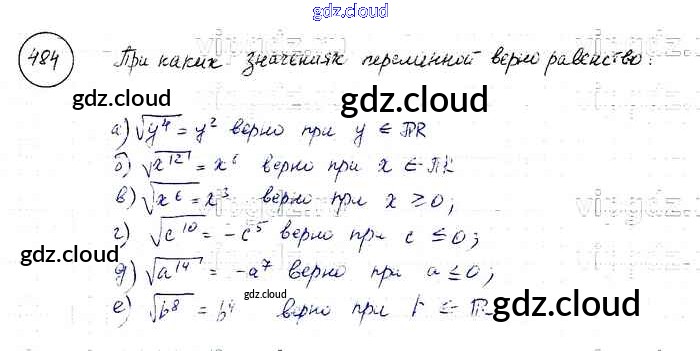 gdz.cloud
484
При каких значениях переменной верно равенство:
gdz.cloud
gdz.cloud
а) √y⁴ = y² верно при y ∈ R
б) √x¹² = x⁶ верно при x ∈ R
в) √x⁶ = x³ верно при x ≥ 0;
г) √c¹⁰ = -c⁵ верно при c ≤ 0;
gdz.cloud
gdz.cloud
д) √a¹⁴ = -a⁷ верно при a ≤ 0;
gdz.cloud
е) √b⁸ = b⁴ верно при b ∈ R
gdz.cloud